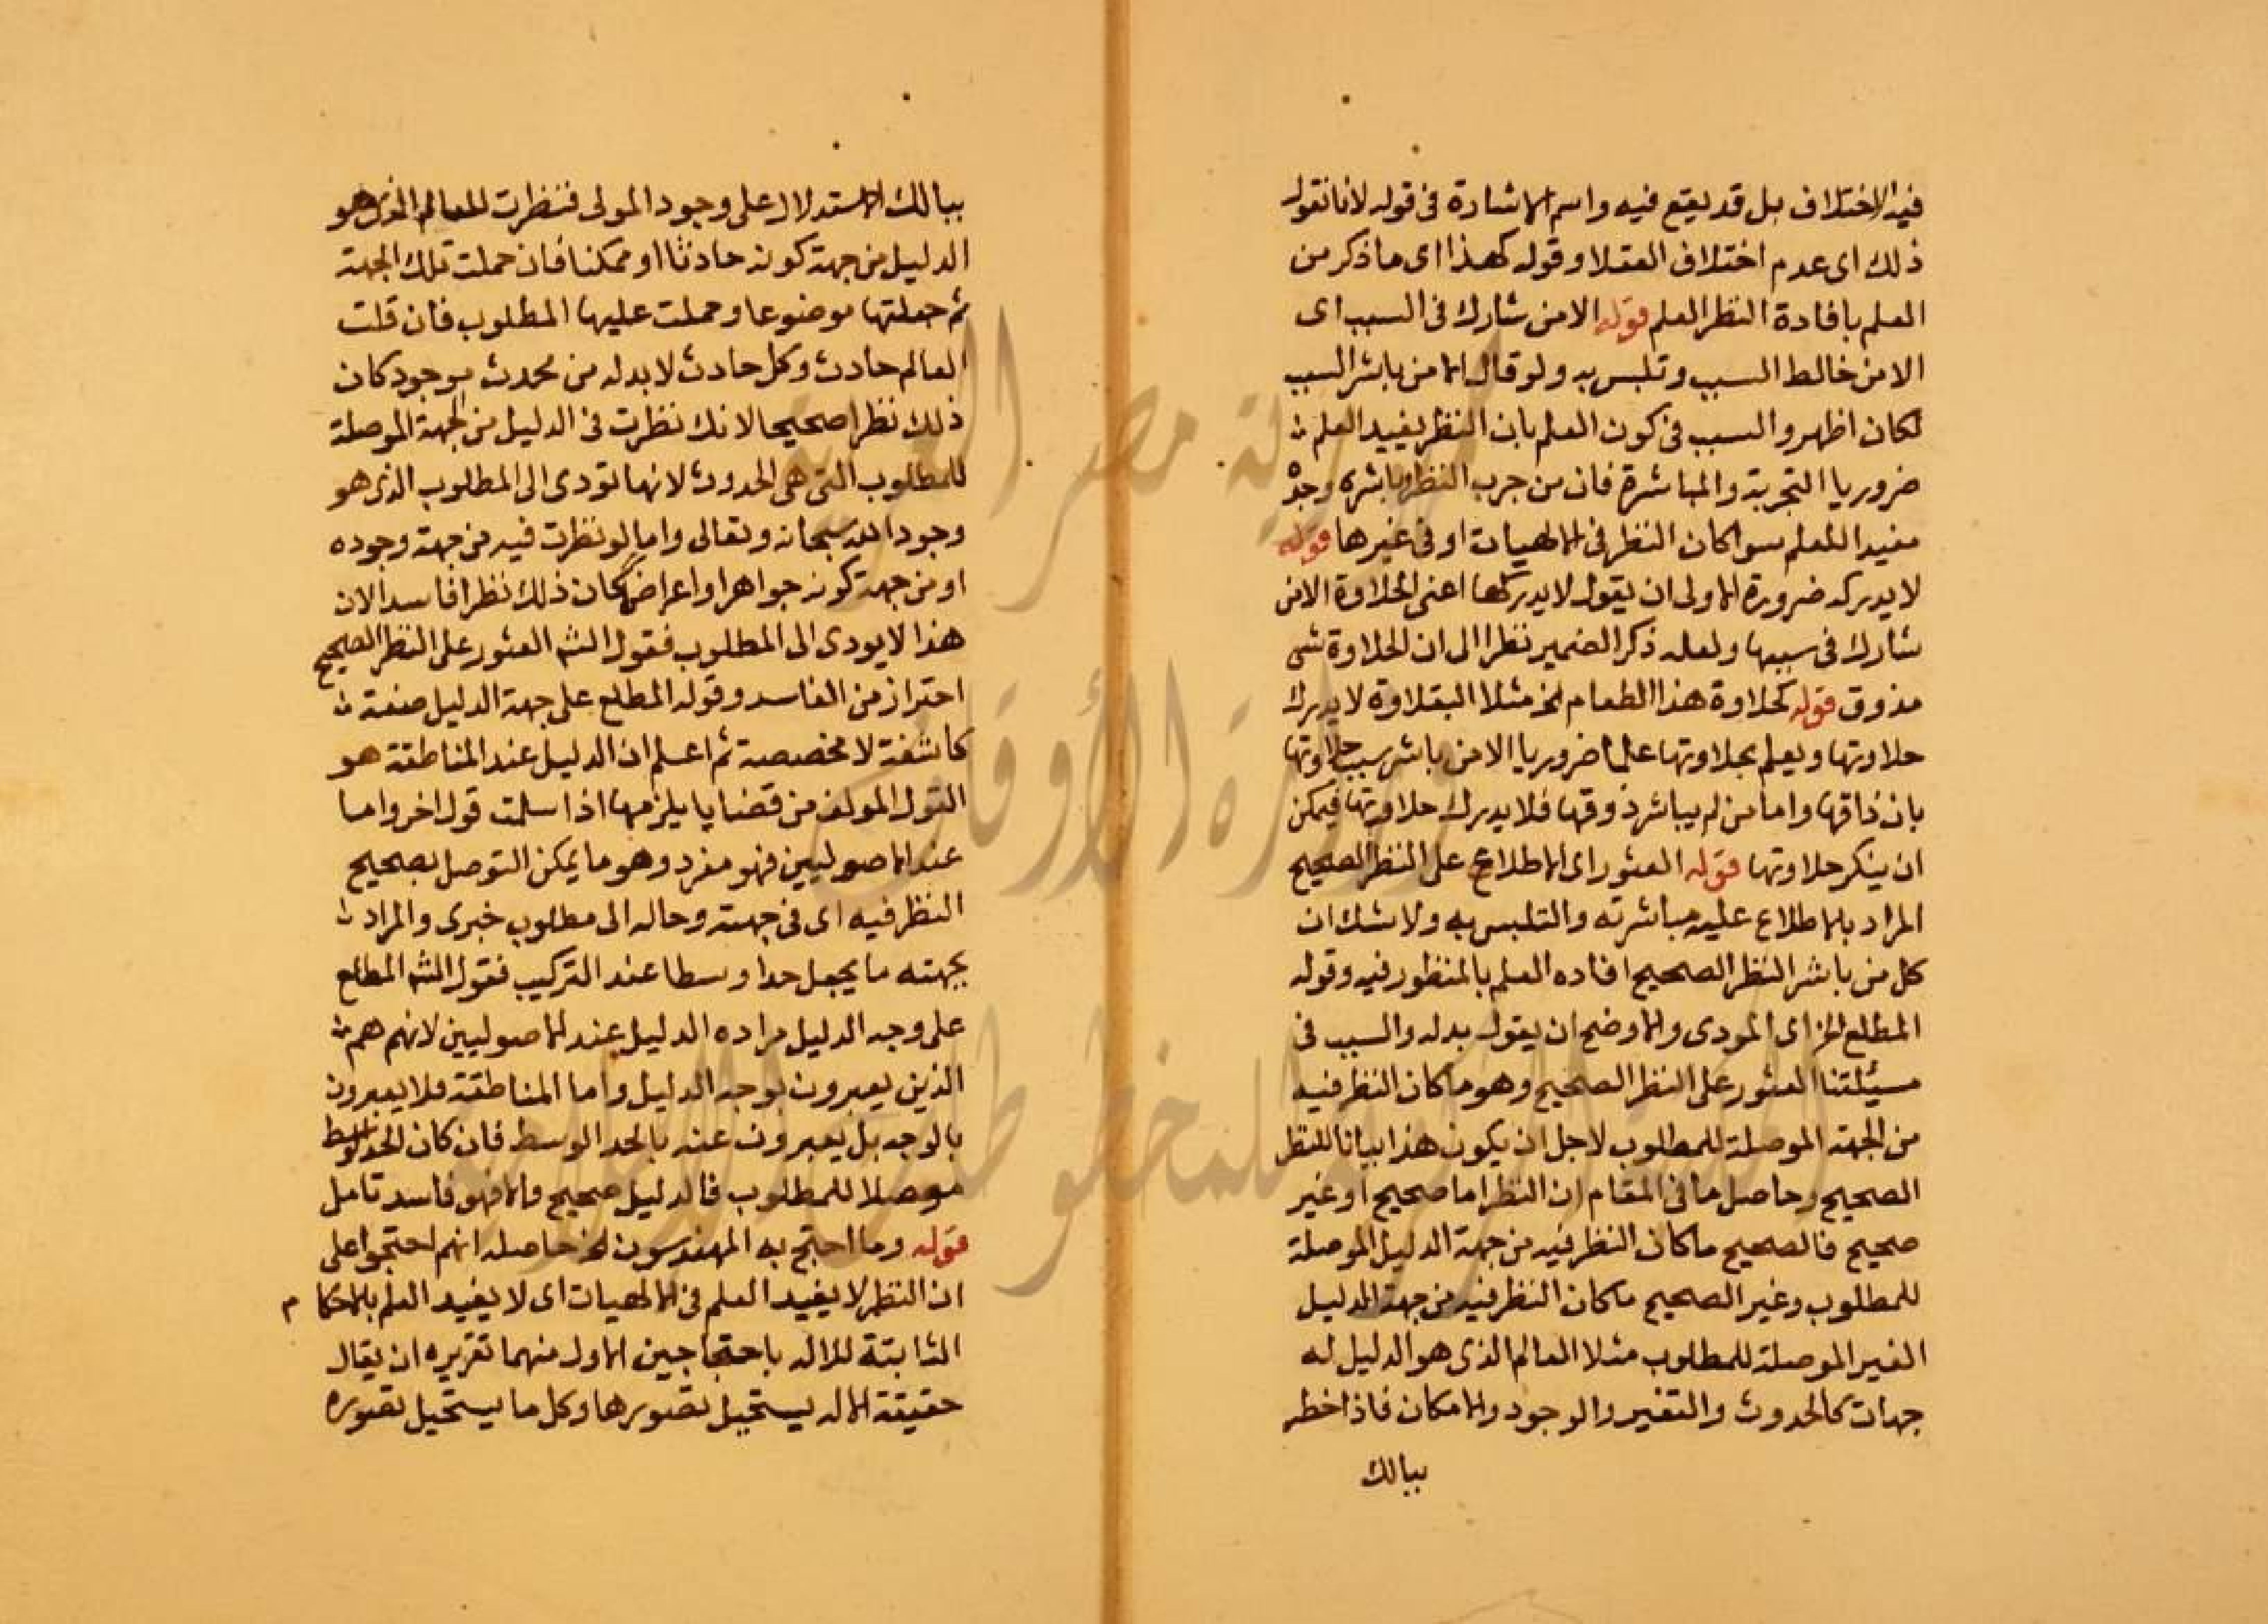 فيه الاختلاف بل قد يقع فيه واسم الاشارة في قوله لانا نقول
ذلك اى عدم اختلاف العقلا وقوله كهذا اى ما ذكر من
العلم بافادة النظر العلم قوله الا من شارك في السبب اى
الا من خالط السبب وتلبس به ولو قال الا من باشر السبب
لكان اظهر والسبب في كون العلم بان النظر يفيد العلم
ضروريا التجربة والمباشرة فان من جرب النظر وباشره وجده
مفيدا للعلم سوا كان النظر في الالهيات او في غيرها قوله
لا يدركه ضرورة الاولى ان يقول لا يدركها اعنى الحلاوة الا من
شارك في سببها ولعله ذكر الضمير نظرا الى ان الحلاوة شى
مذوق قوله كحلاوة هذا الطعام الخ مثلا البقلاوة لا يدرك
حلاوتها ويعلم بحلاوتها علما ضروريا الا من باشر سبب حلاوتها
بان ذاقها واما من لم يباشر ذوقها فلا يدرك حلاوتها فيمكن
ان ينكر حلاوتها قوله العثور اى الاطلاع على النظر الصحيح
المراد بالاطلاع عليه مباشرته والتلبس به ولا شك ان
كل من باشر النظر الصحيح افاده العلم بالمنظور فيه وقوله
المطلع الخ اى المودى والاوضح ان يقول بدله والسبب في
مسئلتنا العثور على النظر الصحيح وهو ما كان النظر فيه
من الجهة الموصلة للمطلوب لاجل ان يكون هذا بيانا للنظر
الصحيح وحاصل ما في المقام ان النظر اما صحيح او غير
صحيح فالصحيح ما كان النظر فيه من جهة الدليل الموصلة
للمطلوب وغير الصحيح ما كان النظر فيه من جهة الدليل
الغير الموصلة للمطلوب مثلا العالم الذى هو الدليل له
جهات كالحدوث والتغير والوجود والامكان فاذا خطر
ببالك
ببالك الاستدلال على وجود المولى فنظرت للعالم الذى هو
الدليل من جهة كونه حادثا او ممكنا فان حملت تلك الجهة
ثم جعلتها موضوعا وحملت عليها المطلوب فان قلت
العالم حادث وكل حادث لا بد له من محدث موجود كان
ذلك نظرا صحيحا لانك نظرت في الدليل من الجهة الموصلة
للمطلوب التى هى الحدوث لانها تودى الى المطلوب الذى هو
وجود الله سبحانه وتعالى واما لو نظرت فيه من جهة وجوده
او من جهة كونه جواهرا واعراضا كان ذلك نظرا فاسدا لان
هذا لا يودى الى المطلوب فقول الش العثور على النظر الصحيح
احتراز من الفاسد وقوله المطلع على جهة الدليل صفة
كاشفة لا مخصصة ثم اعلم ان الدليل عند المناطقة هو
القول المولف من قضايا يلزمها اذا سلمت قول اخر واما
عند الاصوليين فهو مفرد وهو ما يمكن التوصل بصحيح
النظر فيه اى في جهته وحاله الى مطلوب خبرى والمراد
بجهته ما يجعل حدا وسطا عند التركيب فقول الش المطلع
على وجه الدليل مراده الدليل عند الاصوليين لانهم هم
الذين يعبرون بوجه الدليل واما المناطقة فلا يعبرون
بالوجه بل يعبرون عنه بالحد الوسط فان كان الحد الوسط
موصلا للمطلوب فالدليل صحيح والا فهو فاسد تامل
قوله وما احتج به المهندسون الخ حاصله انهم احتجوا على
ان النظر لا يفيد العلم في الالهيات اى لا يفيد العلم بالاحكام
الثابتة للاله باحتجاجين الاول منهما تقريره ان يقال
حقيقة الاله يستحيل تصورها وكل ما يستحيل تصوره